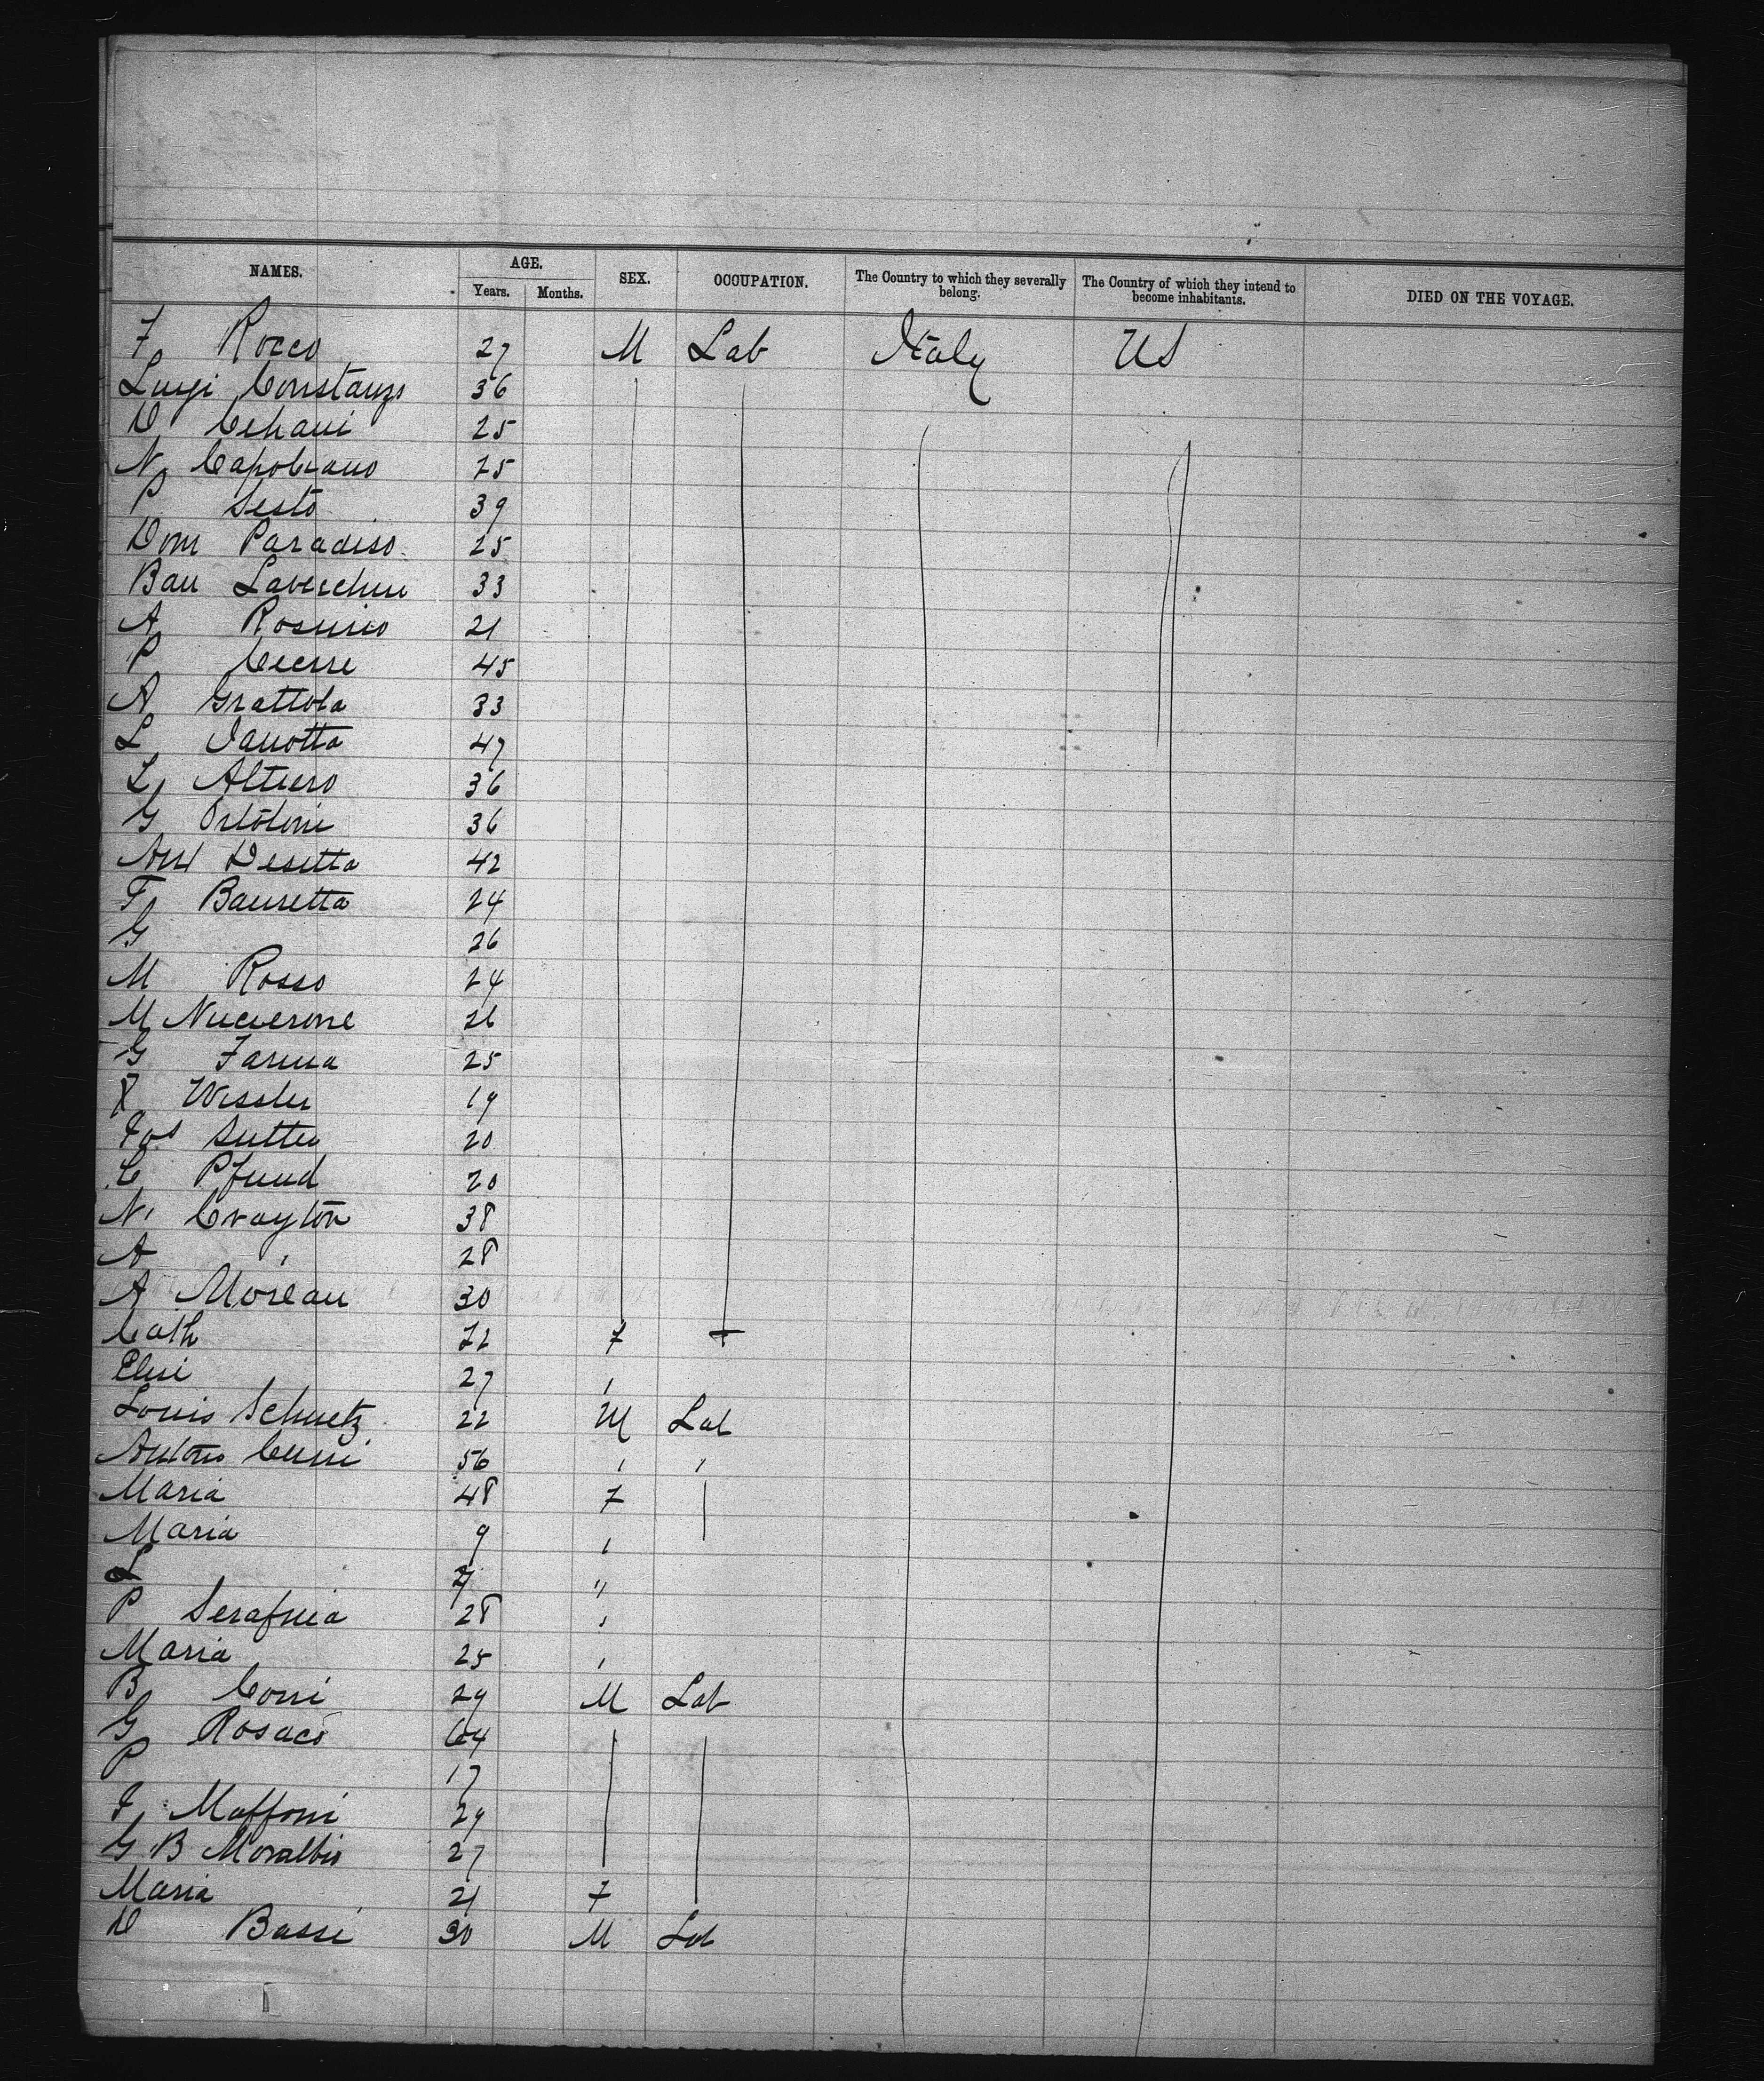 NAMES. AGE. SEX. OCCUPATION. The Country to which they severally belong. The Country of which they intend to become inhabitants. DIED ON THE VOYAGE.
Years. Months.
F Rocco 27 M Lab Italy US
Luigi Constanzo 36
D 25
N Capobiano 25
P Sesto 39
Dom Paradiso 25
33
A 21
P 45
A Grattola 33
L Janotta 47
L 36
G 36
Ant Desetta 42
F Bausetta 24
G 26
M Rosso 24
M 26
G Farina 25
Wissler 19
Jos Sutter 20
C Pfund 20
N Crayton 38
A " 28
A Moreau 30
Cath 22 F +
Elise 27 "
Louis Schuetz 22 M Lab
Antonio 56 " "
Maria 48 F
Maria 9 "
L "
P Serafina 28 "
Maria 25 "
B Corri 29 M Lab
G Rosaco 64
P 17
F Maffoni 29
G B 27
Maria 21 F
D Bassi 30 M Lab